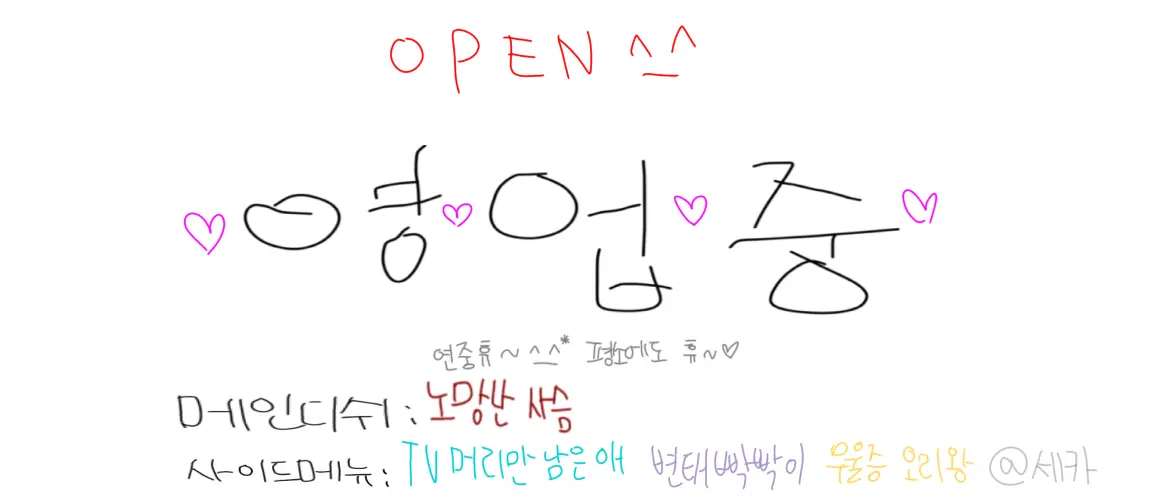 OPEN ^_^
♡영♡업♡중♡
연중휴~^_^* 평소에도 휴~♡
메인디쉬 : 노망난 사슴
사이드메뉴 : TV머리만 남은 애 변태빡빡이 우울증 오리왕 @세카